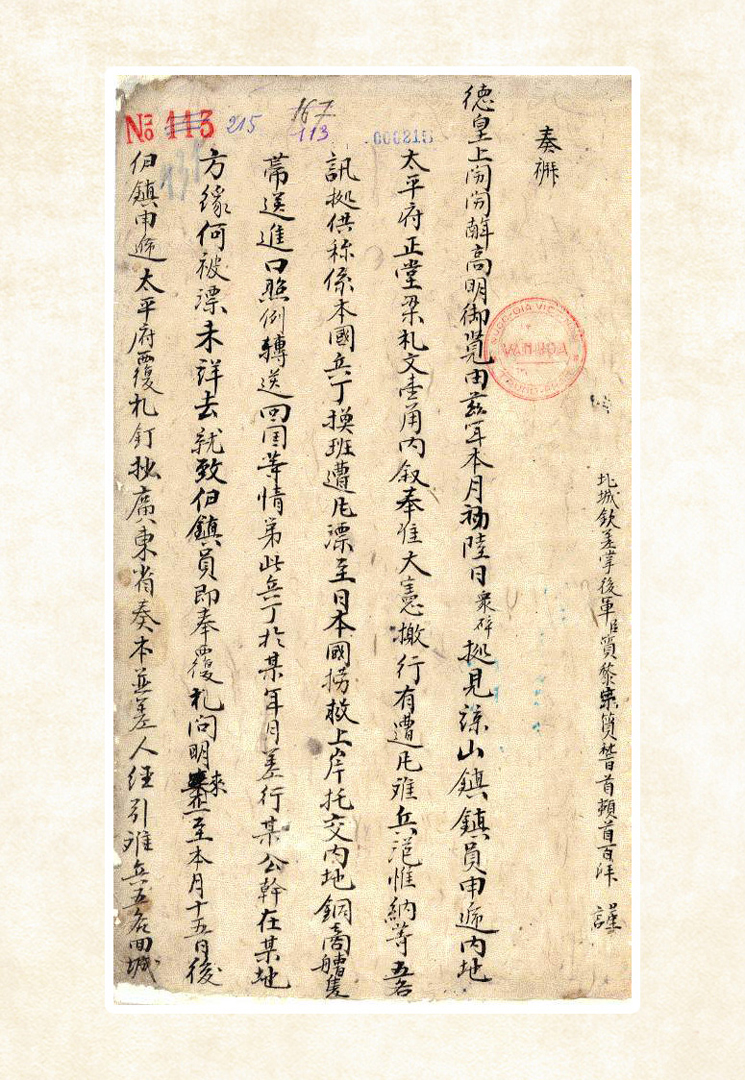 北城欽差掌後軍臣質黎宗質瞽首頓首百拜 謹
奏
德皇上 高明御覧由茲年本月初陸日 拠見諒山鎮鎮員申遞內地
太平府正堂梁札文壹角內叙奉准大憲檄行有遭风难兵范惟納等五名
訊拠供称係本國兵丁換班遭风漂至日本國撈救上岸托交內地銅商艚隻
帶送進口照例轉送回国等情第此兵丁於某年月差行某公幹在某地
方緣何被漂未詳去就致伯鎮員即奉覆札問明來 至本月十五日後
伯鎮申遞太平府覆札釘抄廣東省奏本並差人經引难兵五名回城
No 113 215
167
113
000215
VAN HOA